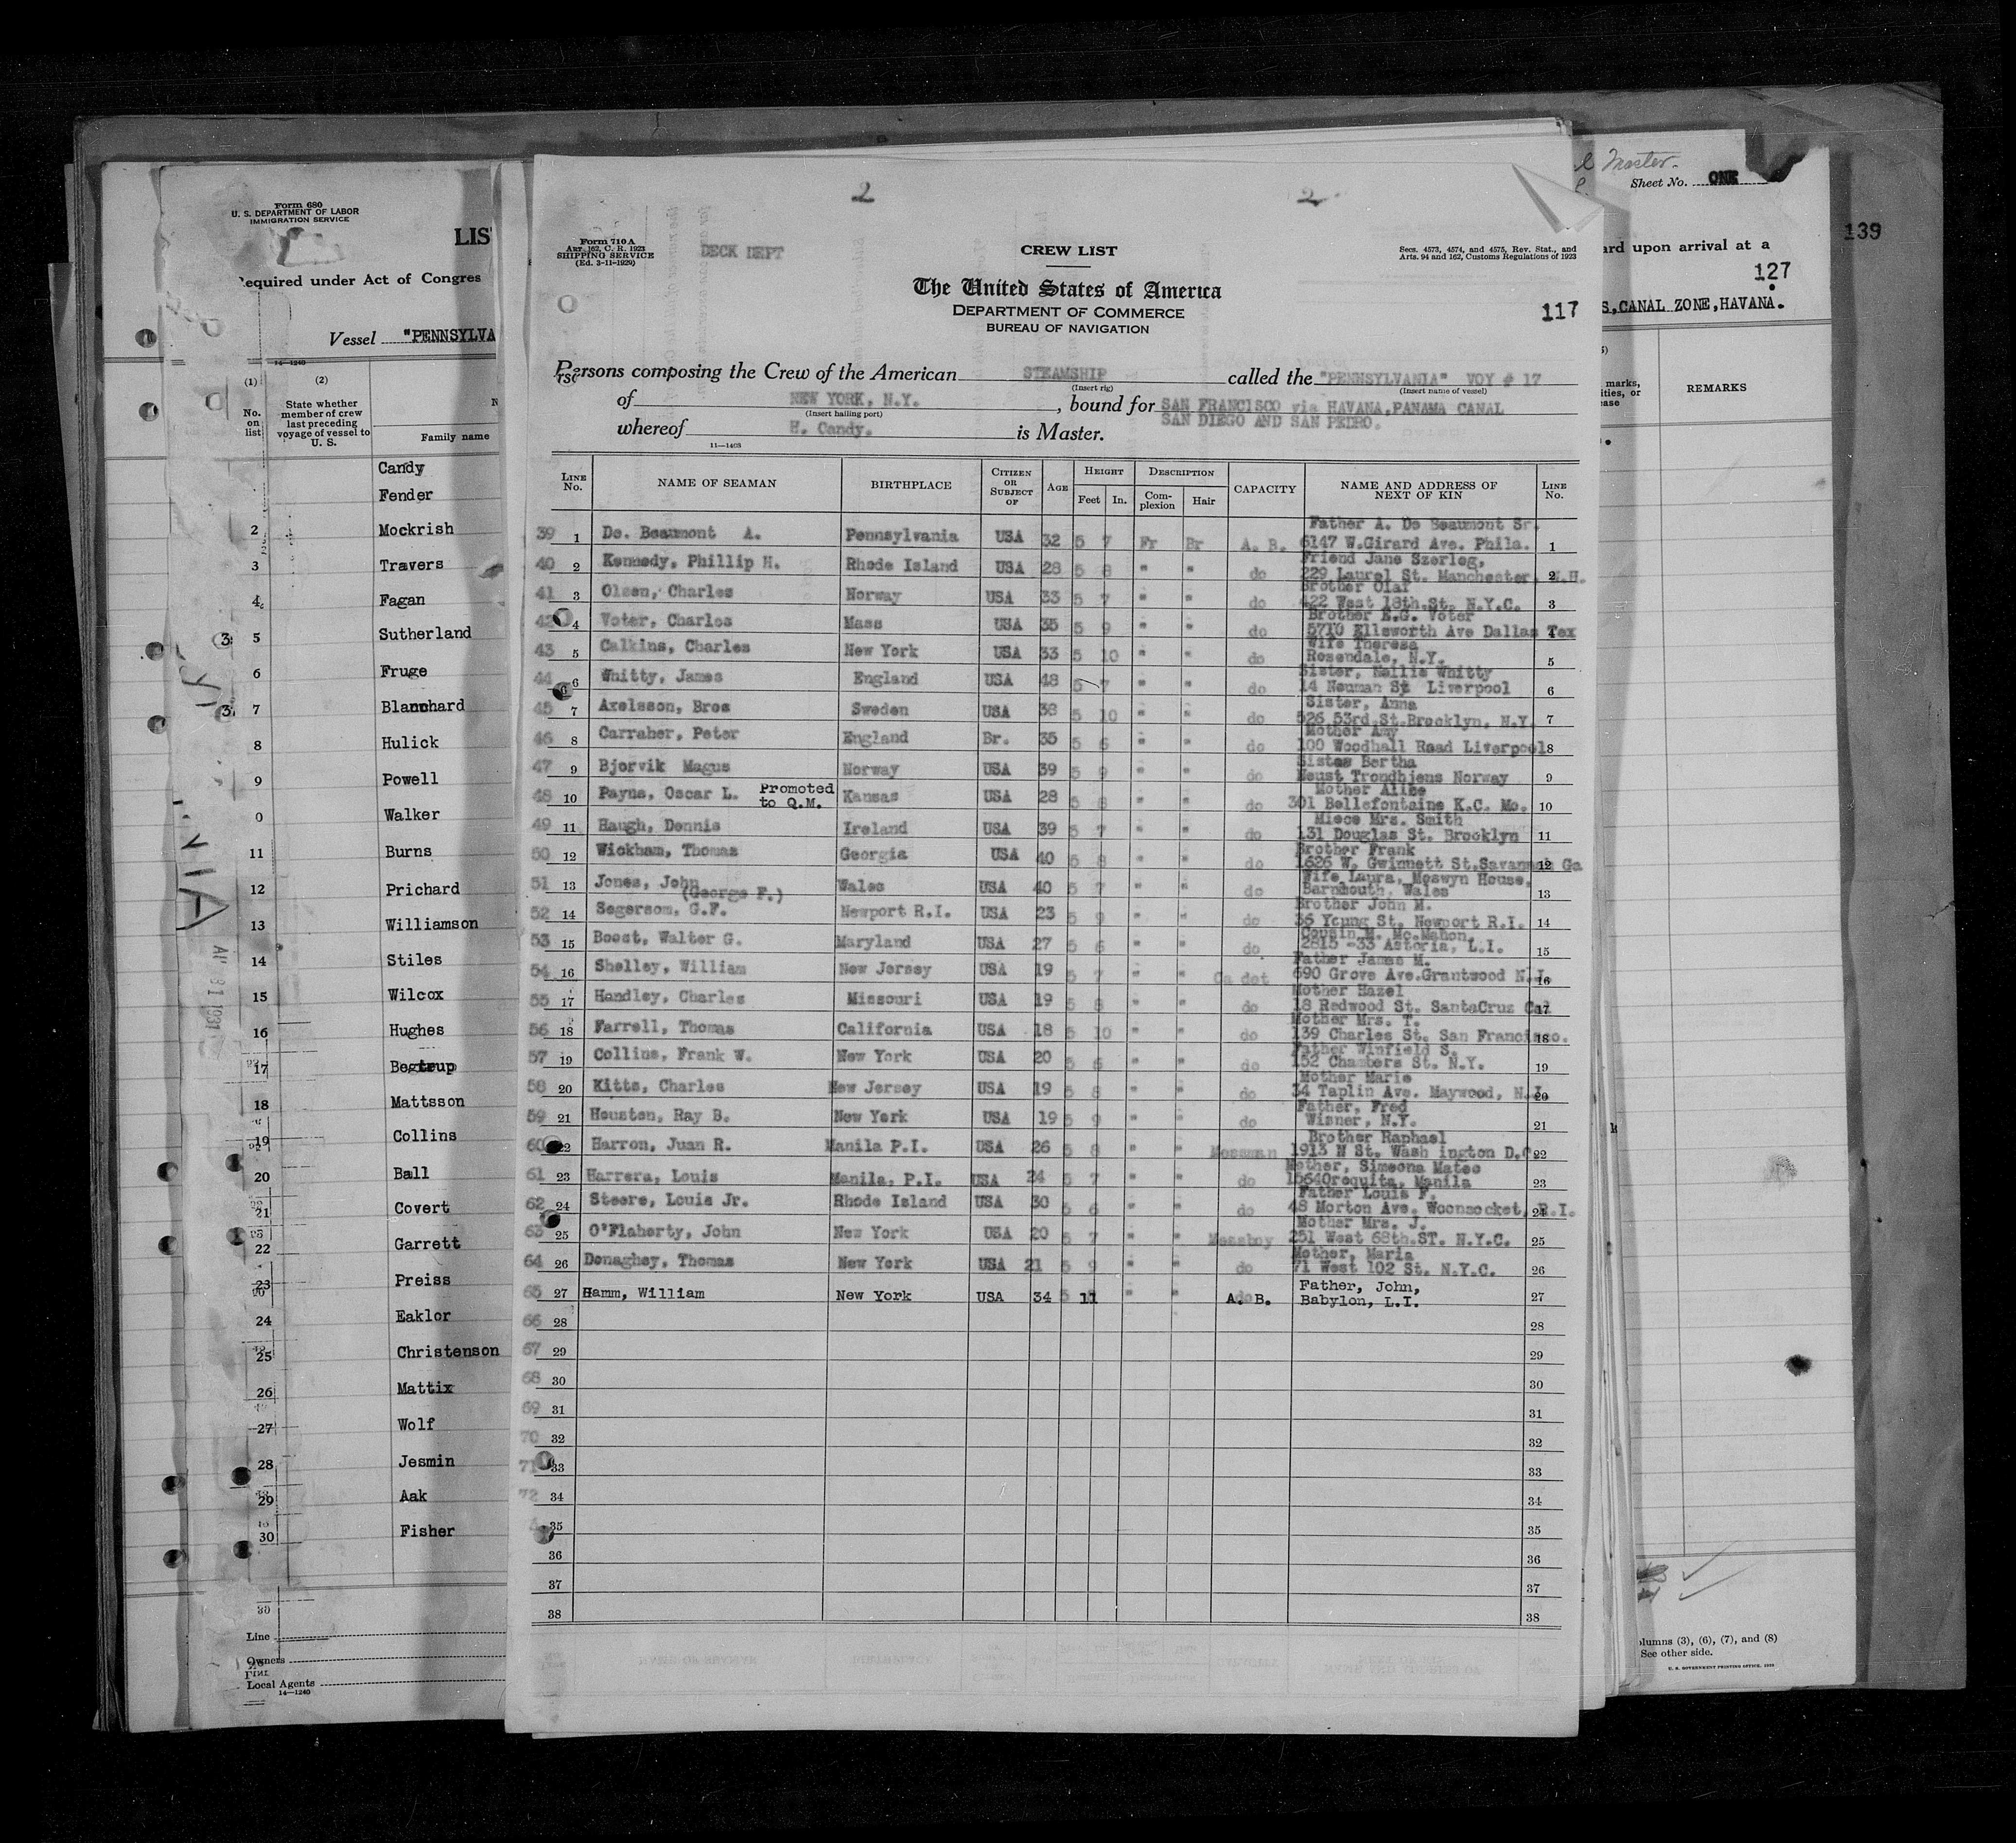 Form 680
U. S. DEPARTMENT OF LABOR
IMMIGRATION SERVICE
LIS
Required under Act of Congres
Vessel "PENNSYLVA
14—1240
(1) (2)
No. on list
State whether member of crew last preceding voyage of vessel to U. S.
Family name
Candy
Fender
2 Mockrish
3 Travers
4 Fagan
5 Sutherland
6 Fruge
7 Blanchard
8 Hulick
9 Powell
0 Walker
11 Burns
12 Prichard
13 Williamson
14 Stiles
15 Wilcox
16 Hughes
17 Begtrup
18 Mattsson
19 Collins
20 Ball
21 Covert
22 Garrett
23 Preiss
24 Eaklor
25 Christenson
26 Mattix
27 Wolf
28 Jesmin
29 Aak
30 Fisher
Line
Owners
Local Agents
14—1240
2 2
Form 710 A
Art. 162, C. R. 1923
SHIPPING SERVICE
(Ed. 3-11-1929)
DECK DEPT
CREW LIST
Secs. 4573, 4574, and 4575, Rev. Stat., and
Arts. 94 and 162, Customs Regulations of 1923
The United States of America
DEPARTMENT OF COMMERCE
BUREAU OF NAVIGATION
117
Persons composing the Crew of the American STEAMSHIP called the "PENNSYLVANIA" VOY # 17
(Insert rig) (Insert name of vessel)
of NEW YORK, N.Y., bound for SAN FRANCISCO via HAVANA,PANAMA CANAL
(Insert hailing port)
SAN DIEGO AND SAN PEDRO.
whereof H. Candy. is Master.
11—1408
LINE No. NAME OF SEAMAN BIRTHPLACE CITIZEN OR SUBJECT OF AGE HEIGHT Feet In. DESCRIPTION Complexion Hair CAPACITY NAME AND ADDRESS OF NEXT OF KIN LINE No.
Father A. De Beaumont Sr.
39 1 De. Beaumont A. Pennsylvania USA 32 5 7 Fr Br A. B. 6147 W.Girard Ave. Phila. 1
Friend Jane Szerleg,
40 2 Kennedy, Phillip H. Rhode Island USA 28 5 8 " " do 229 Laurel St. Manchester, N.H. 2
Brother Olaf
41 3 Olsen, Charles Norway USA 33 5 7 " " do 422 West 18th.St. N.Y.C. 3
Brother E.G. Voter
42 4 Voter, Charles Mass USA 35 5 9 " " do 5710 Ellsworth Ave Dallas Tex
Wife Theresa
43 5 Calkins, Charles New York USA 33 5 10 " " do Rosendale, N.Y. 5
Sister, Nellie Whitty
44 6 Whitty, James England USA 48 5 7 " " do 14 Neuman St Liverpool 6
Sister, Anna
45 7 Axelsson, Bros Sweden USA 38 5 10 " " do 526 53rd.St.Brooklyn, N.Y. 7
Mother Amy
46 8 Carraher, Peter England Br. 35 5 6 " " do 100 Woodhall Road Liverpool 8
Sister Bertha
47 9 Bjorvik Magus Norway USA 39 5 9 " " do Neust Trondhjens Norway 9
Mother Alice
48 10 Payne, Oscar L. Promoted to Q.M. Kansas USA 28 5 8 do 301 Bellefontaine K.C. Mo. 10
Niece Mrs. Smith
49 11 Haugh, Dennis Ireland USA 39 5 7 " " do 131 Douglas St. Brooklyn 11
Brother Frank
50 12 Wickham, Thomas Georgia USA 40 5 8 " " do 1626 W. Gwinnett St.Savannah Ga 12
Wife Laura, Moswyn House,
51 13 Jones, John Wales USA 40 5 7 " " do Barnmouth, Wales 13
(George F.)
Brother John M.
52 14 Segersom, G.F. Newport R.I. USA 23 5 9 " " do 36 Young St. Newport R.I. 14
Cousin M. Mc.Mahon,
53 15 Boost, Walter G. Maryland USA 27 5 6 " " do 2815 -33 Astoria, L.I. 15
Father James M.
54 16 Shelley, William New Jersey USA 19 5 7 " " Cadet 690 Grove Ave.Grantwood N.J. 16
Mother Hazel
55 17 Handley, Charles Missouri USA 19 5 8 " " do 18 Redwood St. SantaCruz Cal 17
Mother Mrs. T.
56 18 Farrell, Thomas California USA 18 5 10 " " do 139 Charles St. San Francisco. 18
Father Winfield S.
57 19 Collins, Frank W. New York USA 20 5 6 " " do 152 Chambers St. N.Y. 19
Mother Marie
58 20 Kitts, Charles New Jersey USA 19 5 8 " " do 34 Taplin Ave. Maywood, N.J. 20
Father, Fred
59 21 Houston, Ray B. New York USA 19 5 9 " " do Wisner, N.Y. 21
Brother Raphael
60 22 Harron, Juan R. Manila P.I. USA 26 5 8 " " Messman 1913 N St. Wash ington D.C. 22
Mother, Simeona Mateo
61 23 Harrera, Louis Manila, P.I. USA 24 5 7 " " do 1564Oroquita, Manila 23
Father Louis F.
62 24 Steere, Louis Jr. Rhode Island USA 30 5 6 " " do 48 Morton Ave. Woonsocket, R.I. 24
Mother Mrs. J.
63 25 O'Flaherty, John New York USA 20 5 7 " " Messboy 251 West 68th.ST. N.Y.C. 25
Mother, Maria
64 26 Donaghey, Thomas New York USA 21 5 9 " " do 71 West 102 St. N.Y.C. 26
Father, John,
65 27 Hamm, William New York USA 34 5 11 " " A. B. Babylon, L.I. 27
66 28 28
67 29 29
68 30 30
69 31 31
70 32 32
71 33 33
72 34 34
35 35
36 36
37 37
38 38
Master.
Sheet No. ONE
139
ard upon arrival at a
127
S,CANAL ZONE,HAVANA.
marks,
ities, or
ease
REMARKS
olumns (3), (6), (7), and (8)
See other side.
U. S. GOVERNMENT PRINTING OFFICE